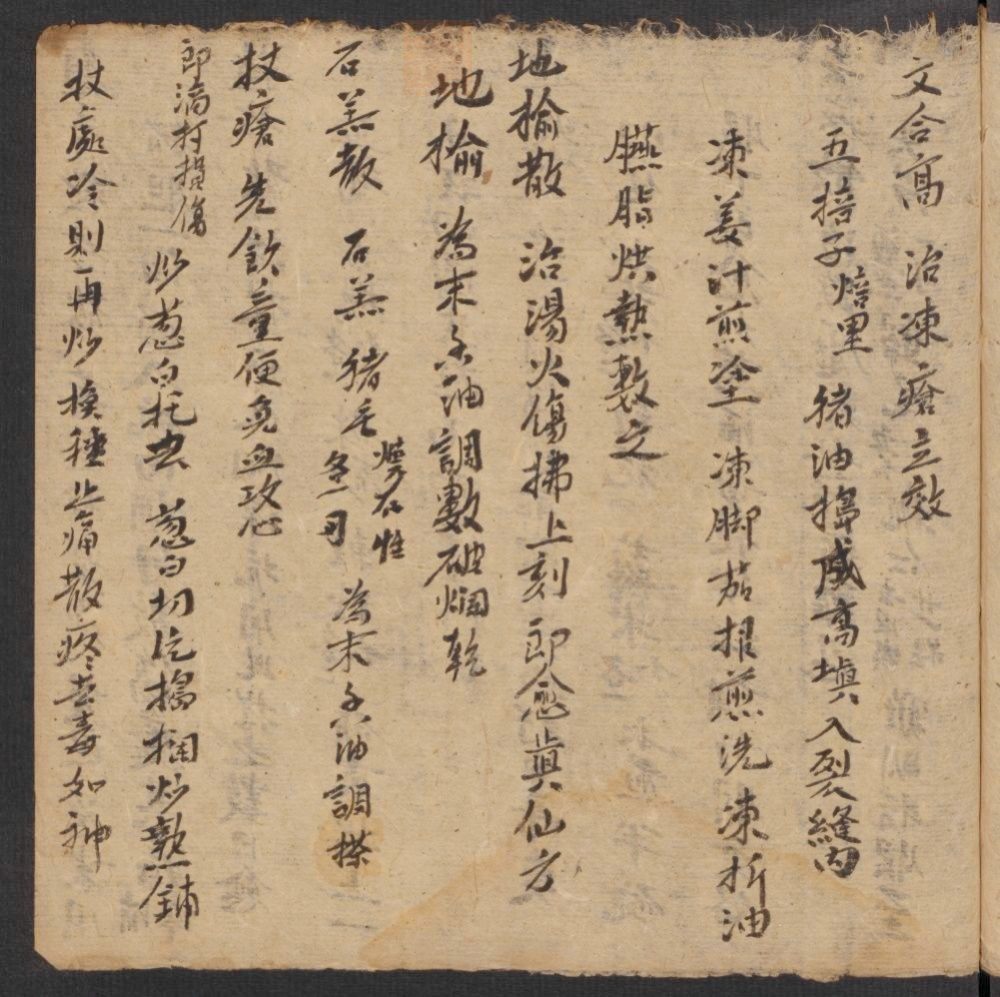 文合膏 治凍瘡立效
五掊子焙黑 猪油搗成膏塡入裂縫內
凍姜汁煎塗 凍脚茄根煎洗 凍折油
臙脂烘熱敷之
地榆散 治湯火傷拂上刻即愈眞仙方
地榆 為末香油調數破爛乾
石羔散 石羔 猪毛煅存性各一兩 為末香油調搽
杖瘡 先飮童便免血攻心
即滴打損傷 炒葱白托法 葱白切訖搗爛炒熱鋪
杖處冷則再炒換種止痛散疼去毒如神